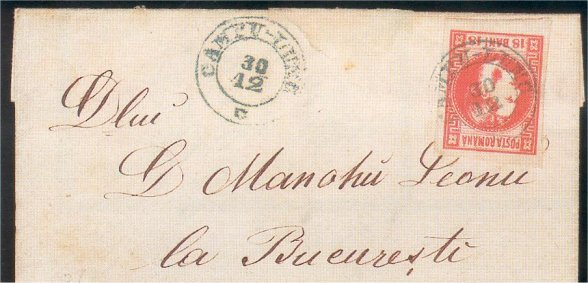 CAMPU-LUNG
30
12
18 BANI 18
POSTA ROMANA
30
12
Dlui
D Manohŭ Leonu
la Bucuresti